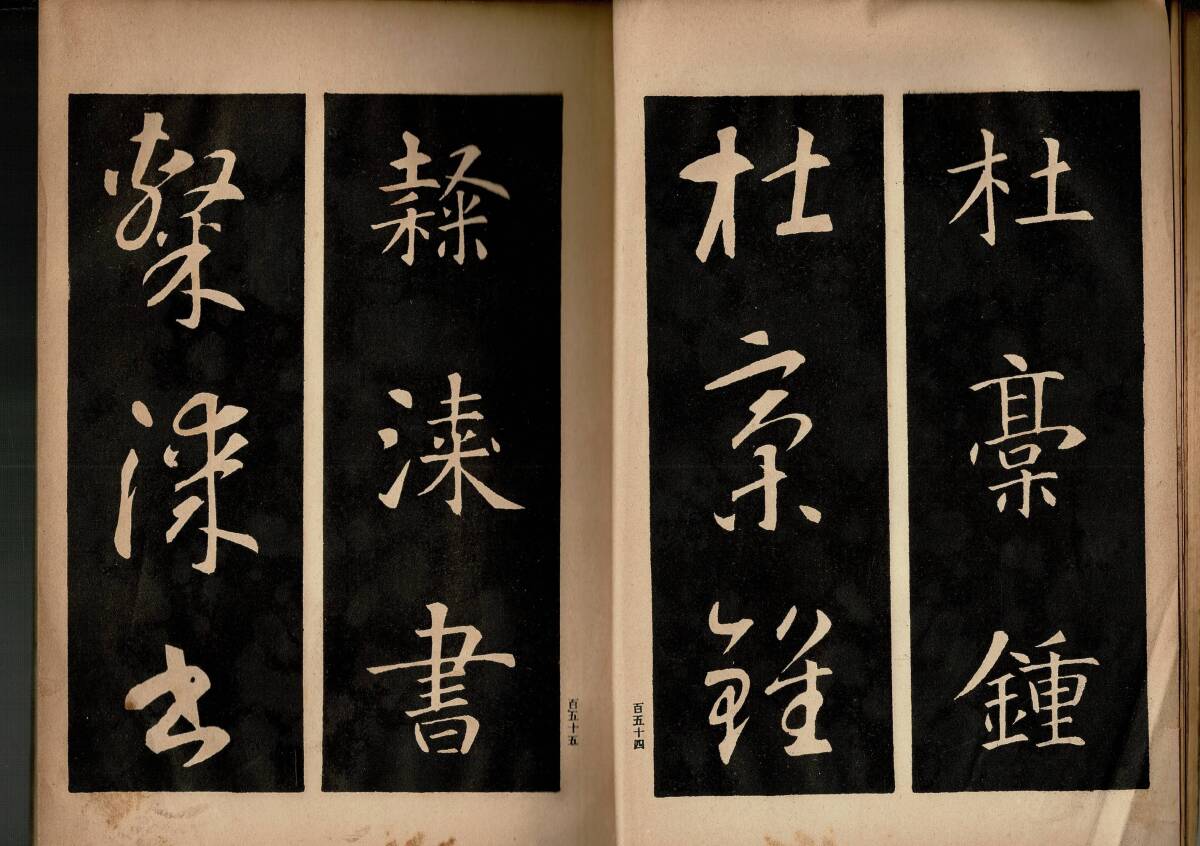 杜稾鍾
杜稾鍾
百五十四
百五十五
隸漆書
隸漆書